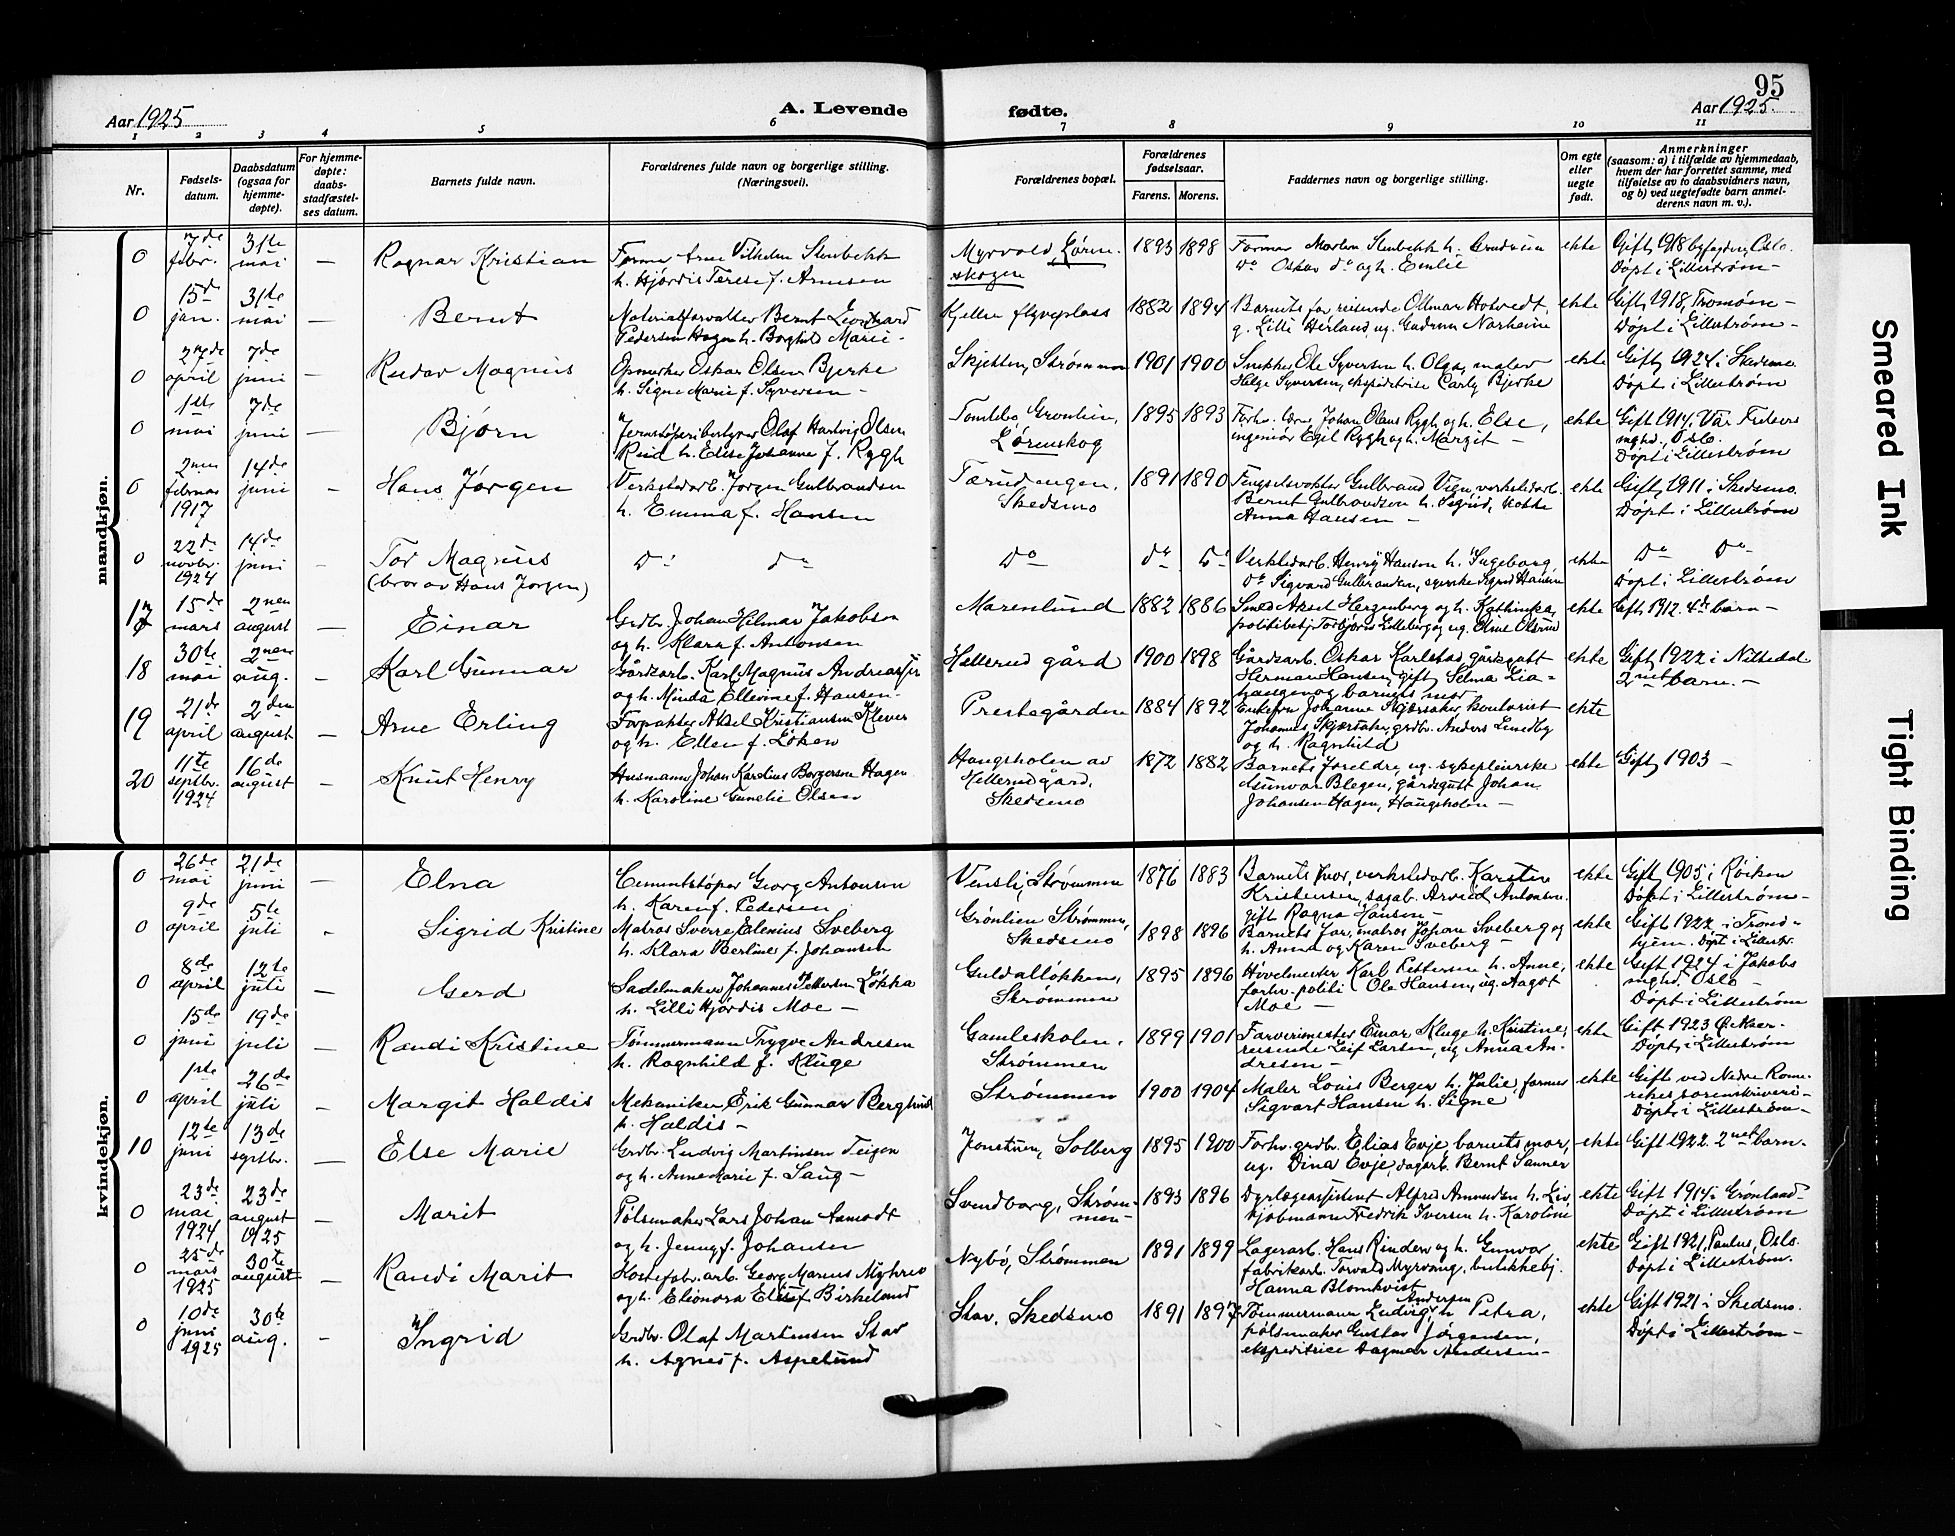 95
Aar 1925 A. Levende fødte. Aar 1925
1 2 3 4 5 6 7 8 9 10 11
Nr.
Fødsels-
datum.
Daabsdatum
(ogsaa for
hjemme-
døpte).
For hjemme-
døpte:
daabs-
stadfæstel-
ses datum.
Barnets fulde navn.
Forældrenes fulde navn og borgerlige stilling.
(Næringsvei).
Forældrenes bopæl.
Forældrenes
fødselsaar.
Farens. Morens.
Faddernes navn og borgerlige stilling.
Om egte
eller
uegte
født.
Anmerkninger
(saasom: a) i tilfælde av hjemmedaab,
hvem der har forrettet samme, med
tilføielse av to daabsvidners navn,
og b) ved uegtefødte barn anmel-
derens navn m. v.).
mandkjøn.
0 7de febr. 31te mai — Ragnar Kristian
Former Arne Vilhelm Stenbekk
h. Hjørdis Terese f. Arnesen
Myrvold, Løren-
skogen
1893 1898
Former Morten Stenbekk h.
Do Oskar do og h. Emlie
ekte
Gift 1918 byfogden, Oslo.
Døpt i Lillestrøm —
0 15de jan. 31te mai — Bernt
Materialforvalter Bernt Leonhard
Pedersen Hagen h. Boghild Marie —
Kjeller flyveplass
1882 1894
Barnets far reisende Ottmar Hotvedt,
g. Lilli Herland, ug. Gudrun Norheim
ekte
Gift 1918, Tromøen —
Døpt i Lillestrøm —
0 27de april 7de juni — Reidar Magnus
Opmerker Oskar Olsen Bjerke
h. Signe Marie f. Syversen —
Skjetten, Strømmen
1901 1900
Snekker Ole Syversen h. Olga, maler
Helge Syversen, ekspeditrise Carly Bjerke
ekte
Gift 1924 i Skedsmo
Døpt i Lillestrøm
0 1ste mai 7de juni — Bjørn
Jernstøperibestyrer Olaf Hartvig Olsen
Rud h. Elise Johanne f. Rygh
Tomtebo, Grønlien,
Lørenskog
1895 1893
Forhv. Johan Olaus Rygh og h. Else,
ingeniør Egil Rygh og h. Margit —
ekte
Gift 1914, Vår Frelsers
mghd., Oslo.
Døpt i Lillestrøm
0 2nen februar 1917 14de juni — Hans Jørgen
Verkstedarb. Jørgen Gulbrandsen
h. Emma f. Hansen
Tærudengen,
Skedsmo
1891 1890
Fengselsvokter Gulbrand Vign, verkstedarb.
Bernt Gulbrandsen h. Sigrid,
Anna Hansen —
ekte
Gift 1911 i Skedsmo.
Døpt i Lillestrøm
0 22de novbr. 1924 14de juni — Tor Magnus
(bror av Hans Jørgen)
Do do
Do
do Do
Verkstedarb. Henry Hansen h. Ingeborg,
do Sigvard Gulbrandsen, syerske Sigrid Hansen
ekte
Do Do
Døpt i Lillestrøm
17 15de mars 2nen august — Einar
Grdbr. Johan Hilmar Jakobsen
og h. Klara f. Antonsen
Marenlund
1882 1886
Smed Aksel Herzenberg og h. Kathinka,
politibetj. Torbjørn Lilleberg og ug. Olsen
ekte
Gift 1912. 4de barn —
18 30te mai 2nen aug. — Karl Gunnar
Gårdsarb. Karl Magnus Andreassen
og h. Minda Ellevine f. Hansen —
Hellerud gård
1900 1898
Gårdsarb. Oskar Karlstad, gårdsgutt
Herman Hansen, gift Selma Lia-
haugen og barnets mor
ekte
Gift 1922 i Nittedal
2net barn. —
19 21de april 2den august — Arne Erling
Forpakter Aksel Kristiansen Klever
og h. Ellen f. Løken
Prestegården
1884 1892
Enkefru Johanne Skjærsaker, kontorist
Johannes Skjærsaker, grdbr. Anders Lundby
og h. Ragnhild
ekte
20 11te septbr. 1924 16de august — Knut Henry
Husmann Johan Karelius Borgersen Hagen
h. Karoline Gunelie Olsen
Haugsholen av
Hellerud gård,
Skedsmo
1872 1882
Barnets foreldre, ug. sykepleierske
Gunvor Blegen, gårdsgutt Johan
Johansen Hagen, Haugsholen —
ekte
Gift 1903 —
kvindekjøn.
0 26de mai 21de juni — Elna
Cementstøper Georg Antonsen
h. Karen f. Pedersen
Vensli, Strømmen
1876 1883
Barnets mor, verkstedarb. Karsten
Kristensen, sagab. Arvid Antonsen
gift Ragna Hansen —
ekte
Gift 1905 i Røiken
Døpt i Lillestrøm —
0 9de april 5te juli - Sigrid Kristine
Matros Sverre Edenius Sveberg
h. Klara Berline f. Johansen
Grønlien Strømmen,
Skedsmo
1898 1896
Barnets far, matros Johan Sveberg og
h. Anna og Karen Sveberg —
ekte
Gift 1922 i Trond-
hjem. Døpt i Lillestr.
0 8de april 12te juli — Gerd
Sadelmaker Johannes Pettersen Løkka
h. Lilli Hjørdis Moe —
Guldalløkken,
Strømmen
1895 1896
Høvelmester Karl Pettersen h. Anne,
forhv. politi Ole Hansen, ug. Aagot
Moe —
ekte
Gift 1924 i Jakobs
mghd. Oslo —
Døpt i Lillestrøm
0 15de juni 19de juli — Randi Kristine
Tømmermann Trygve Andresen
h. Ragnhild f. Kluge
Gamleskolen,
Strømmen
1899 1901
Farverimester Einar Kluge h. Kristine,
reisende Leif Larsen, ug Anna An-
dresen —
ekte
Gift 1923 Ø. Aker —
Døpt i Lillestrøm
0 1ste april 26de juli — Margit Haldis
Mekaniker Erik Gunnar Berglund
h. Haldis —
Strømmen
1900 1904
Maler Louis Berger h. Julie, former
Sigvart Hansen h. Signe
ekte
Gift ved Nedre Rome-
rikes sorenskriveri —
Døpt i Lillestrøm —
10 12te juni 13de septbr. — Else Marie
Grdbr. Ludvig Martinsen Teigen
og h. Anne Marie f. Haug —
Jonstun, Solberg
1895 1900
Forhv. grdbr. Elias Evje, barnets mor,
ug. Dina Evje, dagarb. Bernt Sanner
ekte
Gift 1922. 2net barn.
0 23de mai 1924 23de august 1925 — Marit
Pølsemaker Lars Johan Aamodt
og h. Jenny f. Johansen
Svendborg, Strøm-
men —
1893 1896
Dyrlegeassistent Alfred Amundsen h. Liv
kjøbmann Fredrik Iversen h. Karoline
ekte
Gift 1914 i Grønland —
Døpt i Lillestrøm
0 25de mars 1925 30te august — Randi Marit
Hestefabr. arb. Georg Marius Myhrer
og h. Elionora Elise f. Birkelund
Nybø, Strømmen
1891 1899
Lagerarb. Hans Rinden og h. Gunvor
fabrikarb. Torvald Myrvang, butikkbetj.
Hanna Blomkvist
ekte
Gift 1921, Paulus, Oslo.
Døpt i Lillestrøm.
0 10de juni 1925 30te aug. - Ingrid
Grdbr. Olaf Martinsen Stav
h. Agnes f. Aspelund
Stav, Skedsmo
1891 1897
Tømmermann Ludvig Andersen h Petra,
pølsemaker Gustav Jørgensen,
ekspeditrice Dagmar Andersen —
ekte
Gift 1921 i Skedsmo.
Døpt i Lillestrøm —
Smeared Ink
Tight Binding